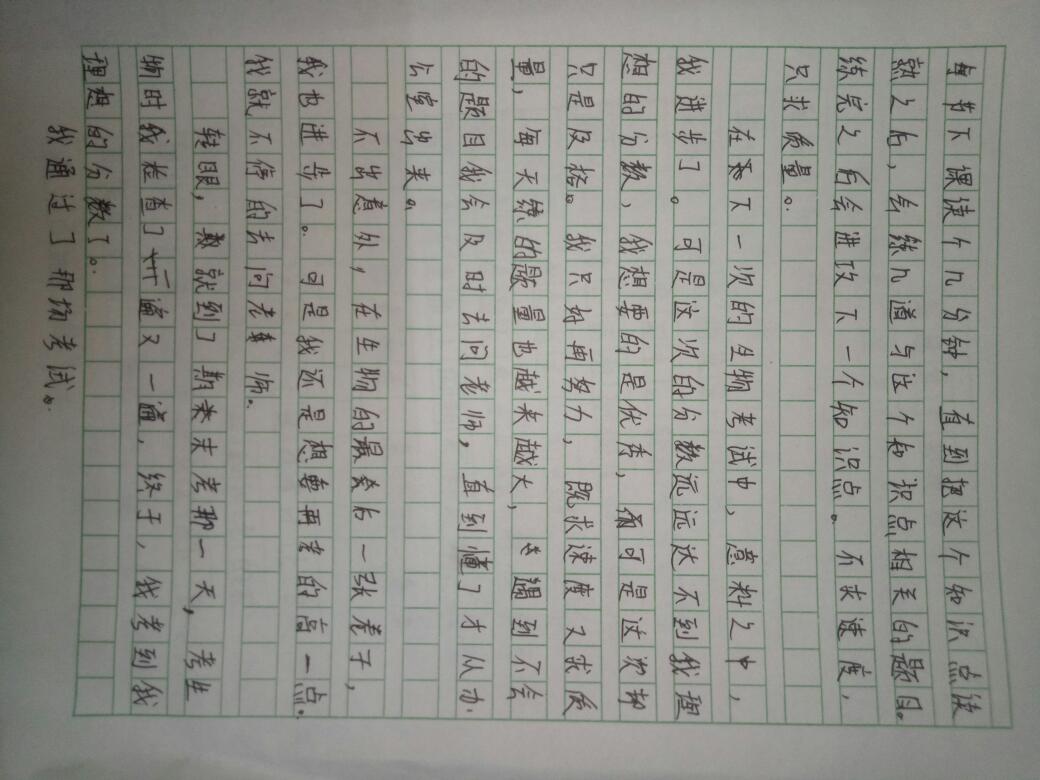 每节下课读个几分钟，直到把这个知识点读
熟之后，会练几道与这个知识点相关的题目。
练完之后会进攻下一个知识点。不求速度，
只求质量。
在下一次的生物考试中，意料之中，
我进步了。可是这次的分数远远达不到我理
想的分数，我想要的是优秀，可是这次却
只是及格。我只好再努力，既求速度又求质
量，每天练的题量也越来越大，遇到不会
的题目我会及时去问老师，直到懂了才从办
公室出来。
不出意外，在生物的最后一张卷子，
我也进步了。可是我还是想要再考的高一点。
我就不停的去问老师。
转眼，就到了期末考那一天，考生
物时我检查了一遍又一遍，终于，我考到我
理想的分数了。
我通过了那场考试。